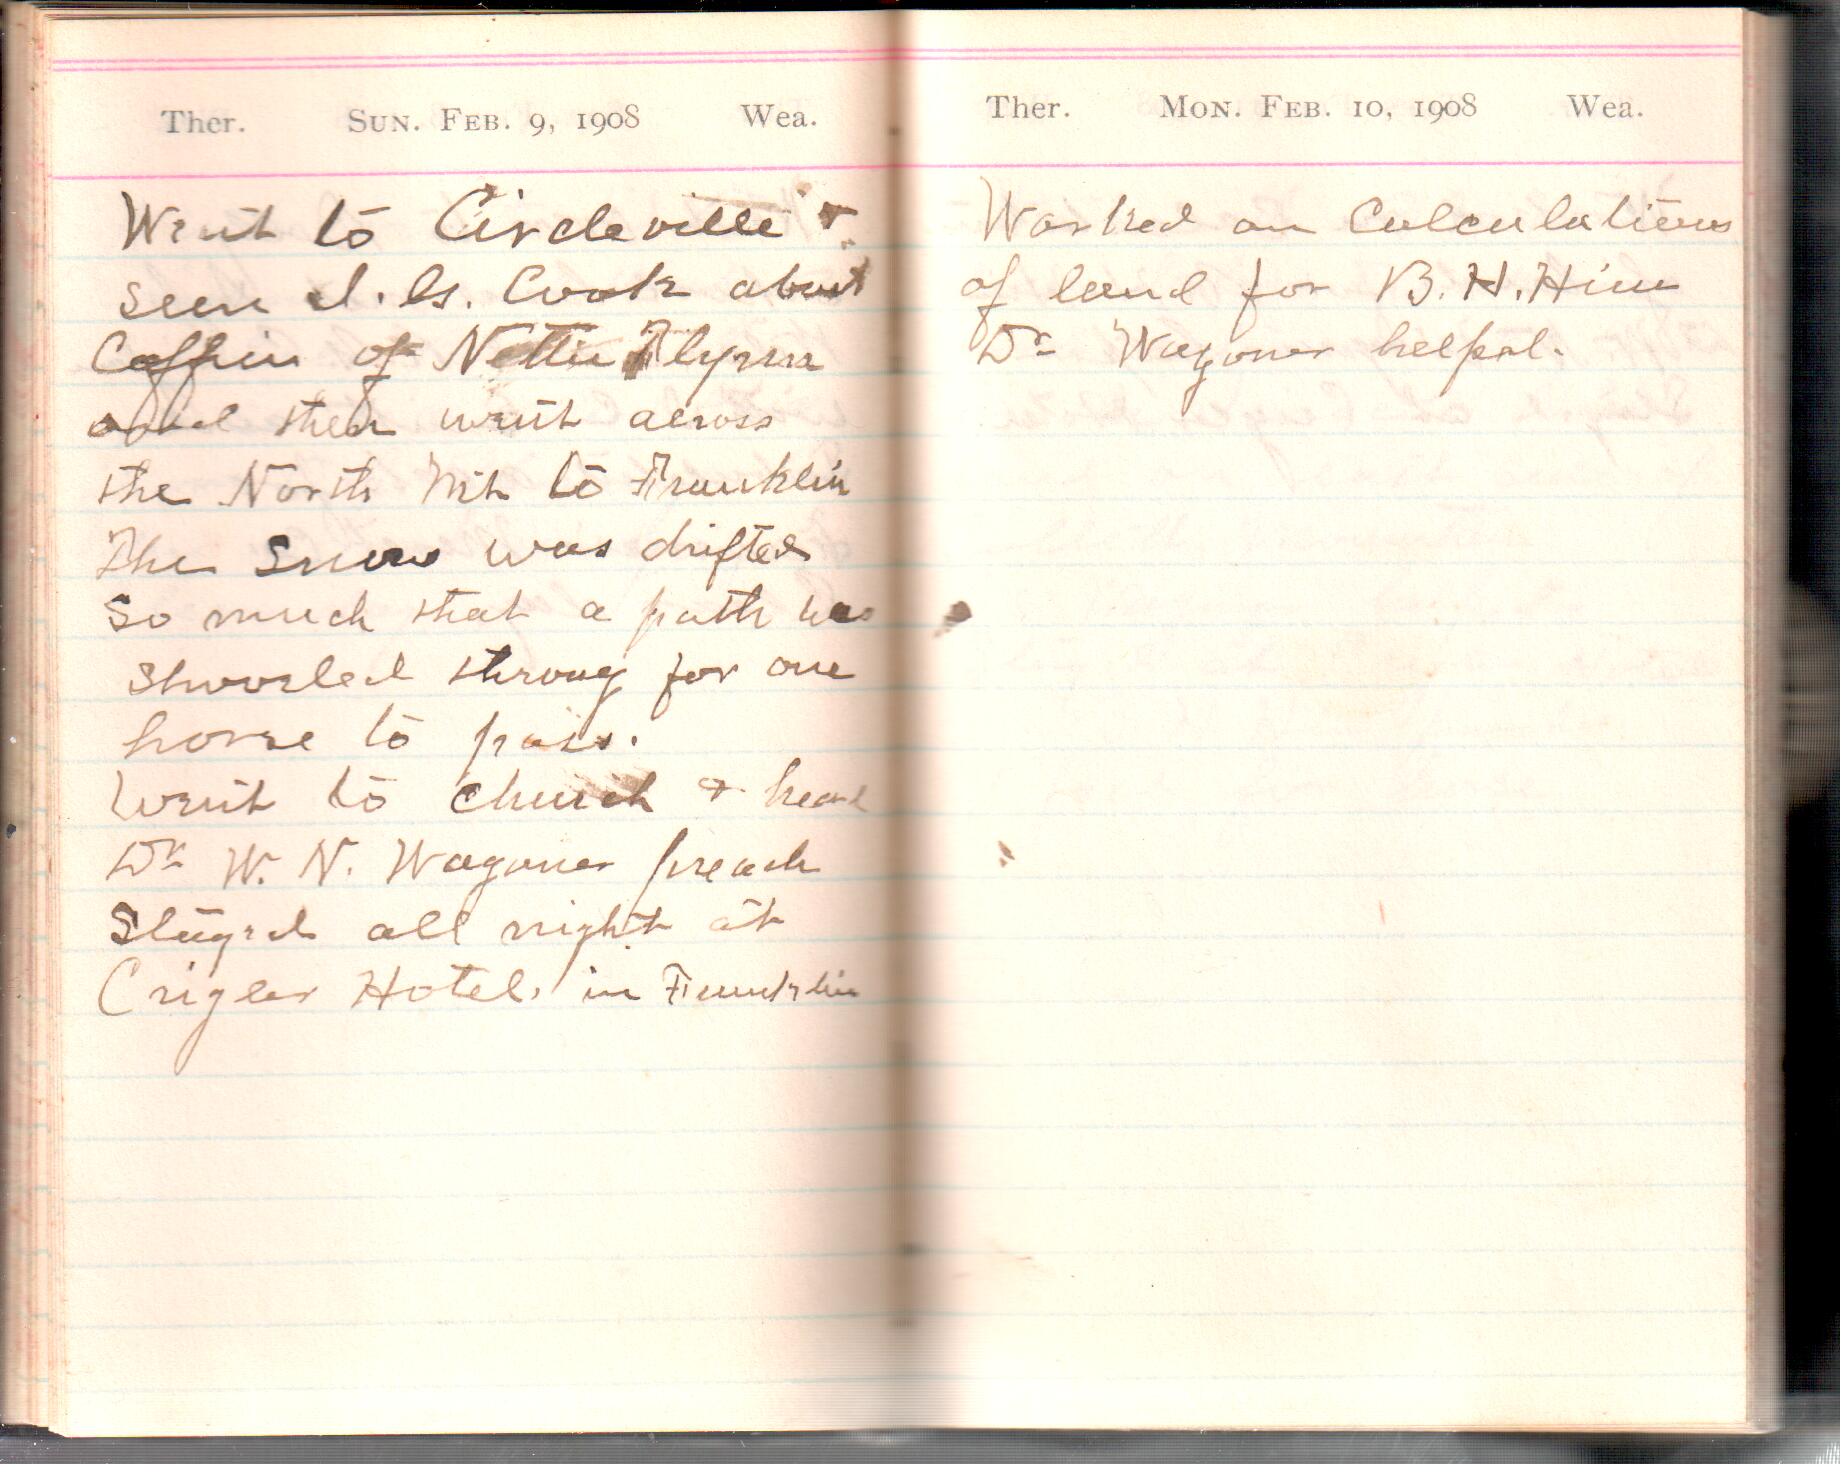 Ther. Sun. Feb. 9, 1908 Wea.
Went to Circleville &
seen J. G. Cook about
Coffin of Nettie Flynn
and then went across
the North Mt to Franklin
The Snow was drifted
So much that a path was
shoveled throug for one
horse to pass.
Went to church & heard
Dr W. N. Wagoner preach
Stayed all night at
Crigler Hotel. in Franklin
Ther. Mon. Feb. 10, 1908 Wea.
Worked on Calculations
of land for B. H. Hiner
Dr Wagoner helped.